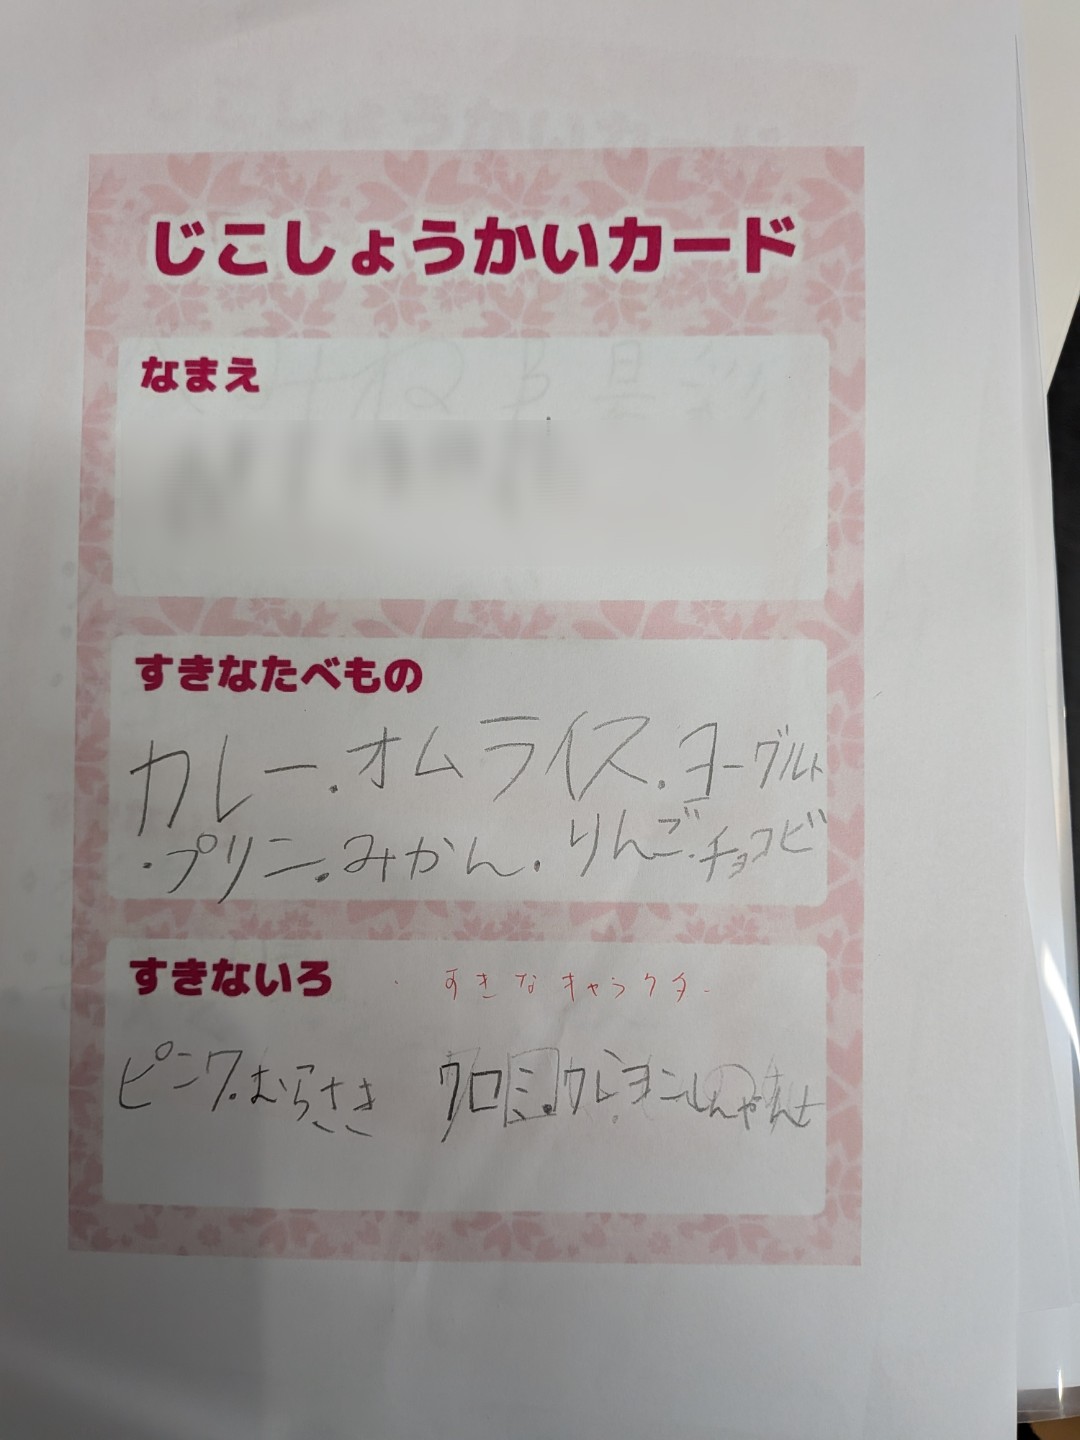 じこしょうかいカード
なまえ
すきなたべもの
カレー.オムライス.ヨーグルト
・プリン.みかん.りんご.チョコビ
すきないろ ・すきなキャラクター
ピンク.むらさき クロミ.クレヨンしんちゃん